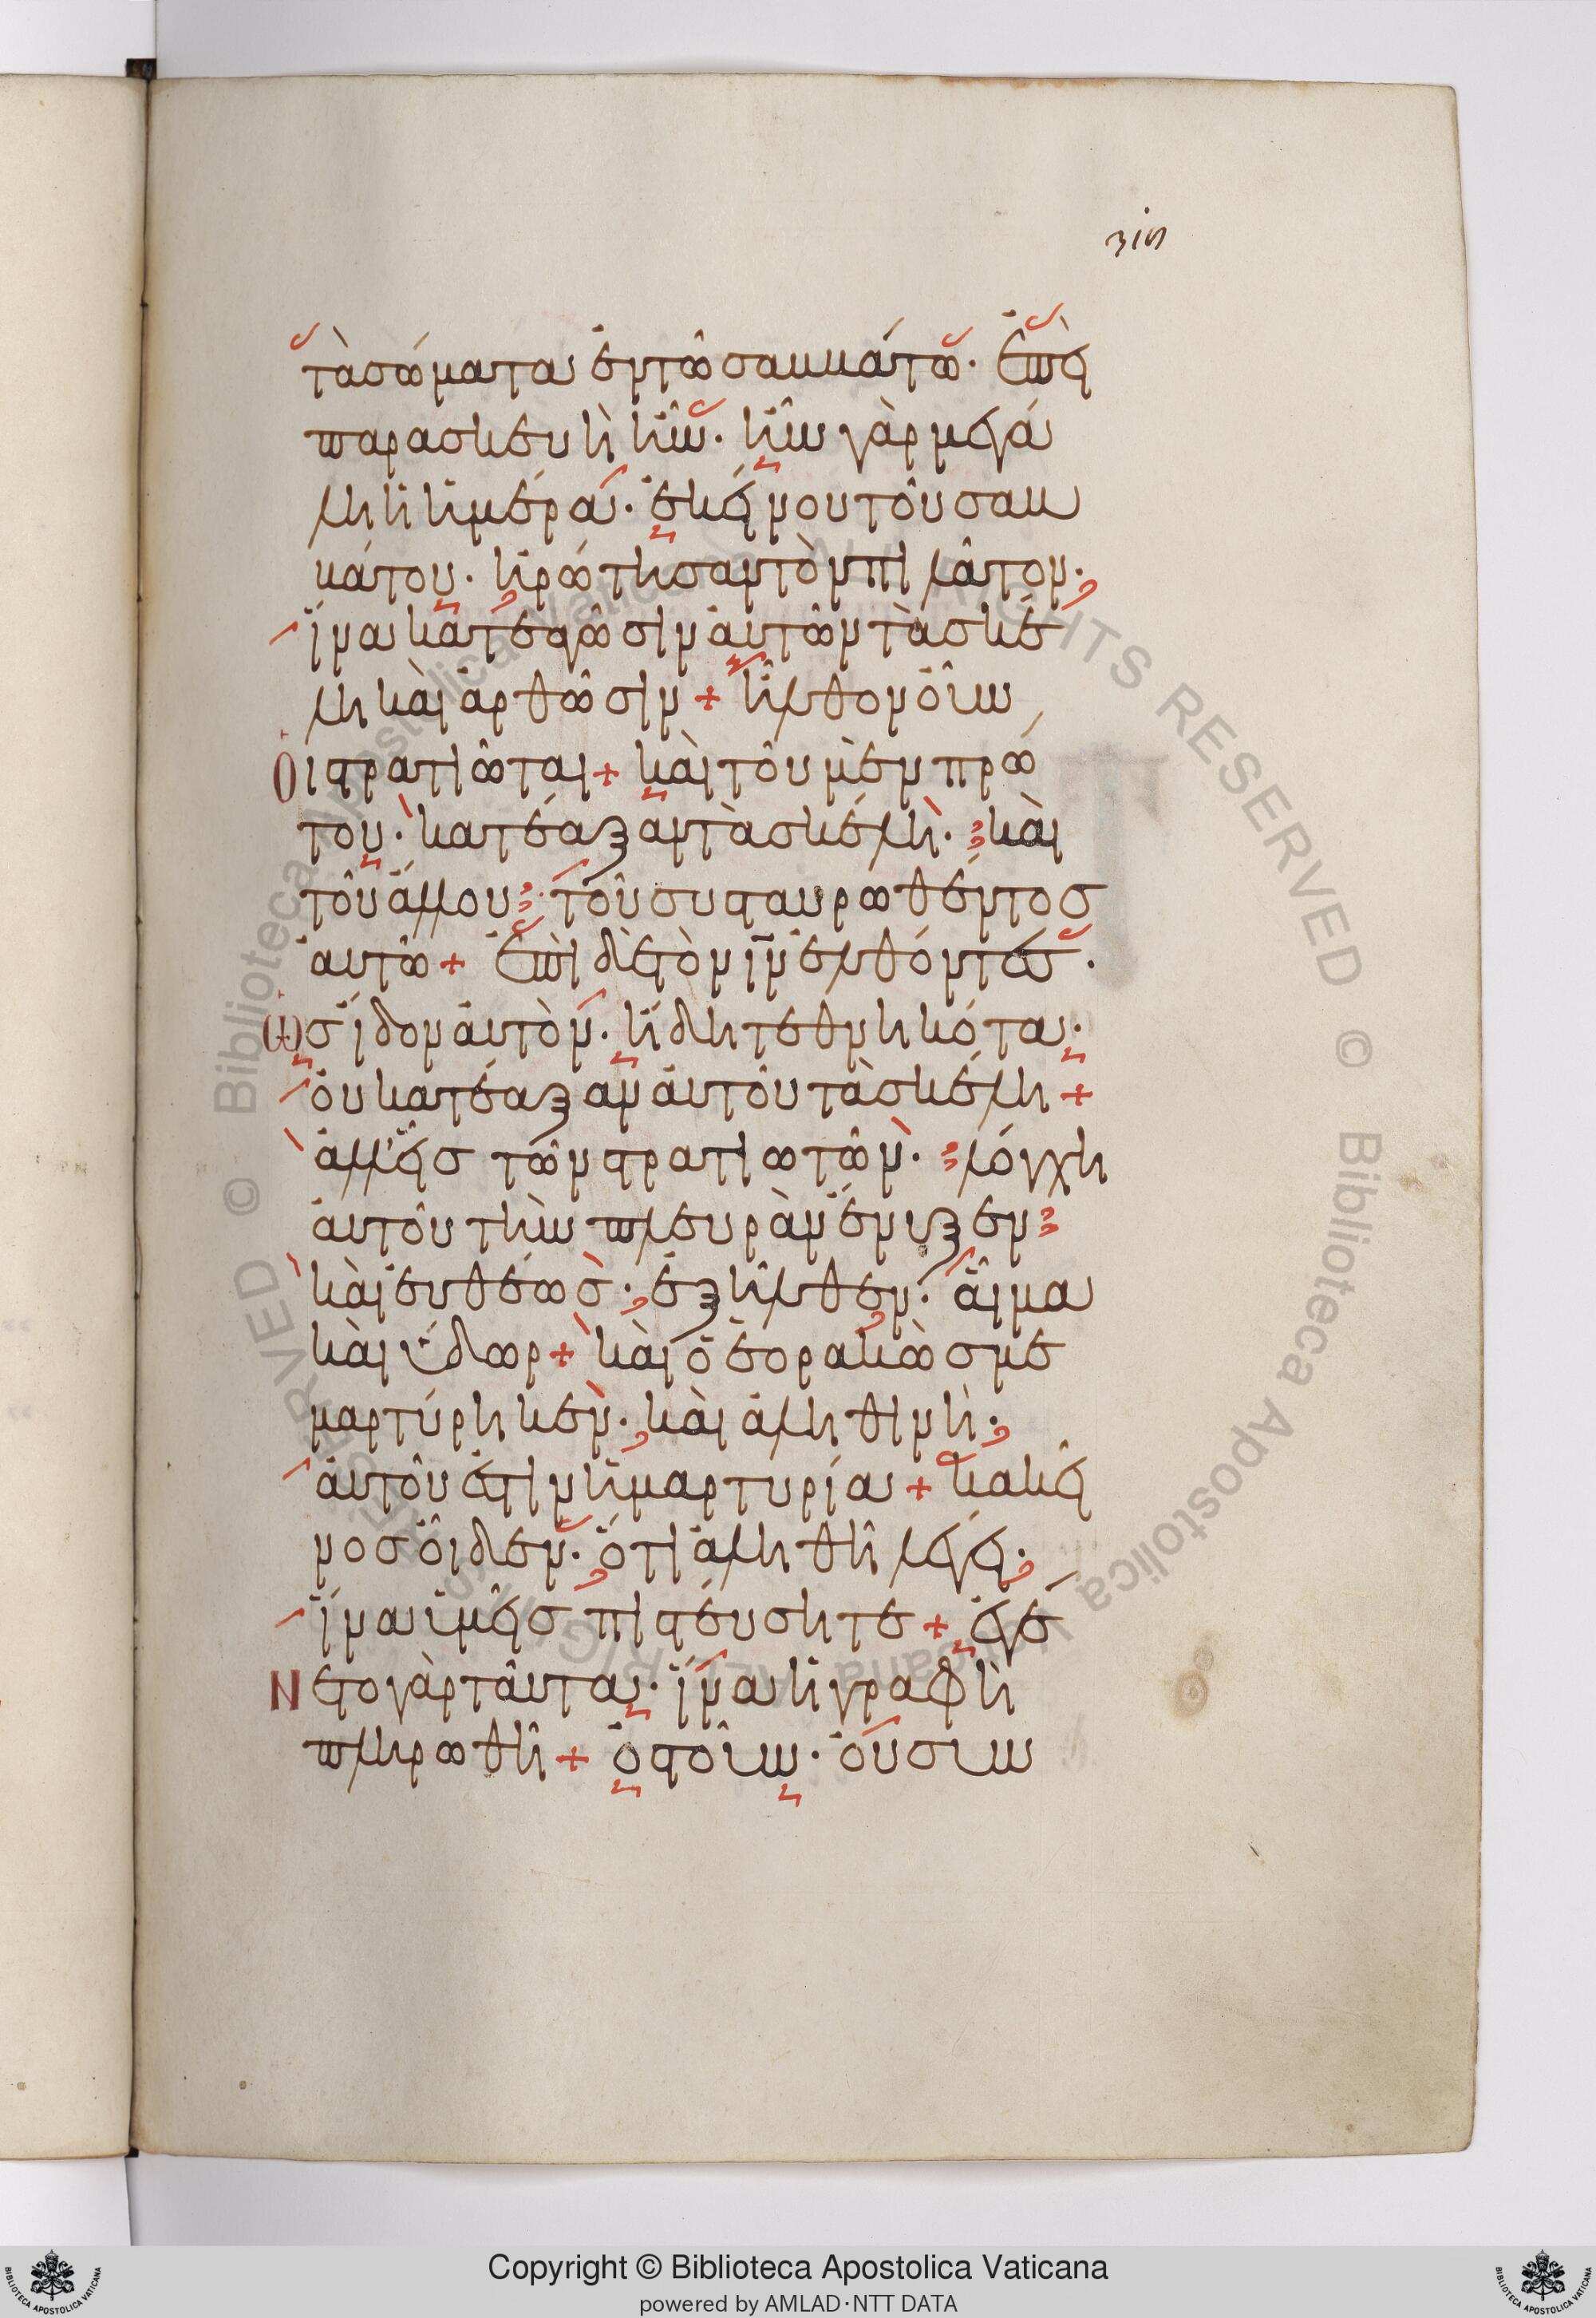 τὰ σώματα ἐν τῶ σαββάτω· ἐπεὶ
παρασκευὴ ἦν· ἦν γὰρ μεγά
λη ἡ ἡμέρα· ἐκείνου τοῦ σαβ
βάτου· ἠρώτησαν τὸν πιλάτον·
ἵνα κατεαγῶσιν αὐτῶν τὰ σκέ
λη καὶ ἀρθῶσιν + ἦλθον οὖν
Οἱ στρατιῶται + καὶ τοῦ μὲν πρώ
του· κατέαξαν τὰ σκέλη· καὶ
τοῦ ἄλλου· τοῦ συσταυρωθέντος
αὐτῶ + ἐπὶ δὲ τὸν ιν ἐλθόντες·
Ὡς ἴδον αὐτὸν· ἤδη τεθνηκότα·
οὐ κατέαξαν αὐτοῦ τὰ σκέλη +
ἀλλ' εἷς τῶν στρατιωτῶν· λόγχη
αὐτοῦ τὴν πλευρὰν ἔνυξεν
καὶ εὐθέως· ἐξῆλθεν· αἷμα
καὶ ὕδωρ + καὶ ὁ ἑορακὼς με
μαρτύρηκεν· καὶ ἀληθινὴ·
αὐτοῦ ἐστιν ἡ μαρτυρία + κακεῖ
νος οἶδεν· ὅτι ἀληθῆ λέγει·
ἵνα ὑμεῖς πιστεύσητε + ἐγέ
Νετο γὰρ ταῦτα· ἵνα ἡ γραφὴ
πληρωθῆ + ὀστοῦν· οὐ συν
Copyright © Biblioteca Apostolica Vaticana
powered by AMLAD·NTT DATA